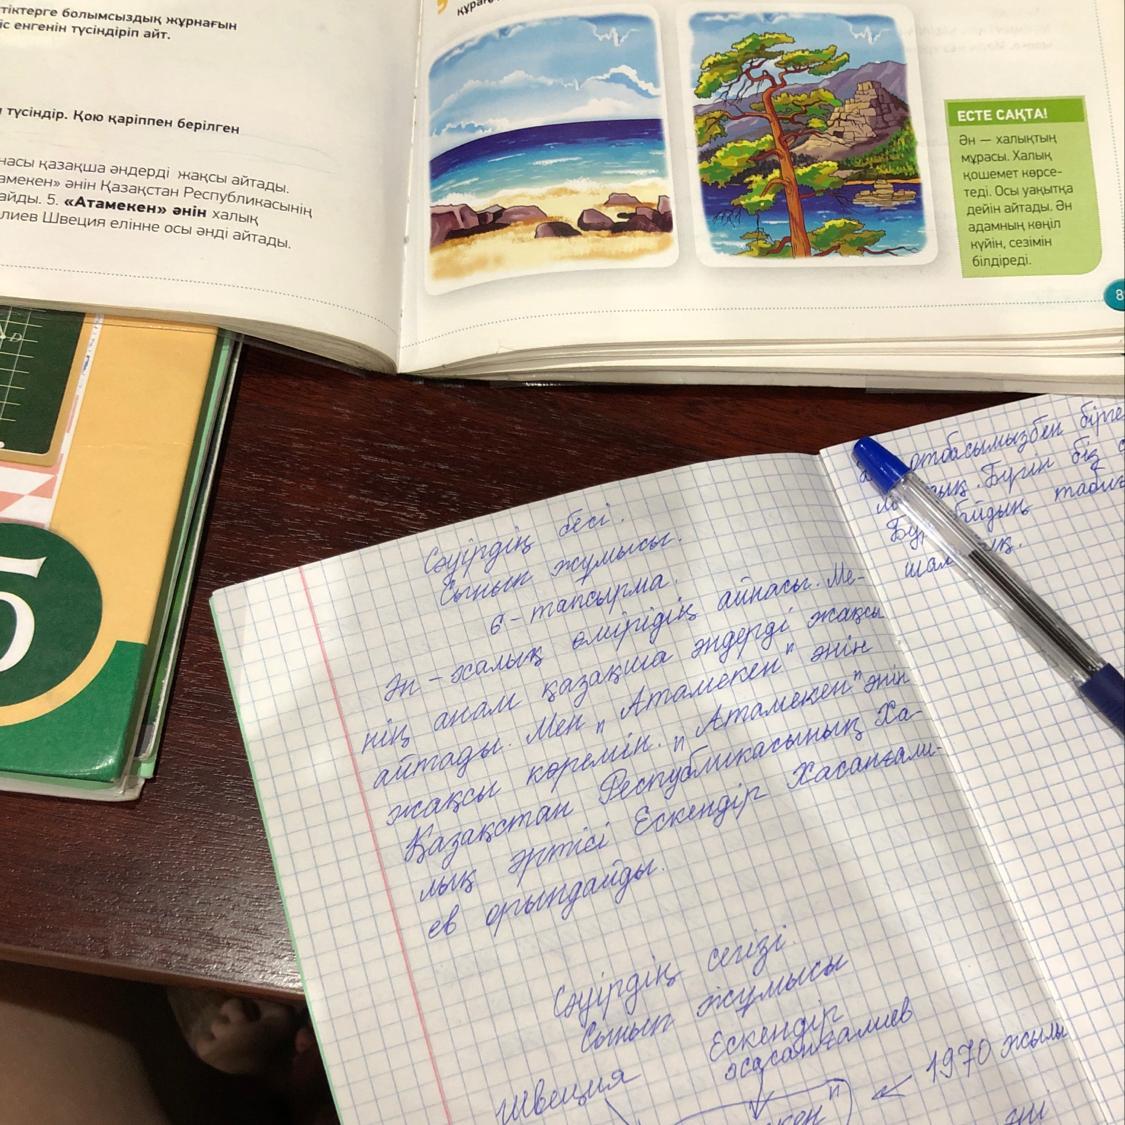 тіктерге болымсыздық жұрнағын
іс енгенін түсіндіріп айт.
түсіндір. Қою қаріппен берілген
насы қазақша әндерді жақсы айтады.
амекен» әнін Қазақстан Республикасының
айды. 5. «Атамекен» әнін халық
лиев Швеция елінне осы әнді айтады.
ЕСТЕ САҚТА!
Ән — халықтың
мұрасы. Халық
қошемет көрсе-
теді. Осы уақытқа
дейін айтады. Ән
адамның көңіл
күйін, сезімін
білдіреді.
8
5
отбасымызбен бірге
Бүгін біз
шам
Сәуірдің бесі.
Сынып жұмысы.
6 - тапсырма.
Ән - халық өмірідің айнасы. Ме-
нің анам қазақша әндерді жақсы
айтады. Мен "Атамекен" әнін
жақсы көремін. "Атамекен" әнін
Қазақстан Республикасының Ха-
лық әртісі Ескендір Хасанғали-
ев орындайды.
Сәуірдің сегізі.
Сынып жұмысы
Ескендір
Хасанғалиев
Швеция
1970 жылы
кен"
әні